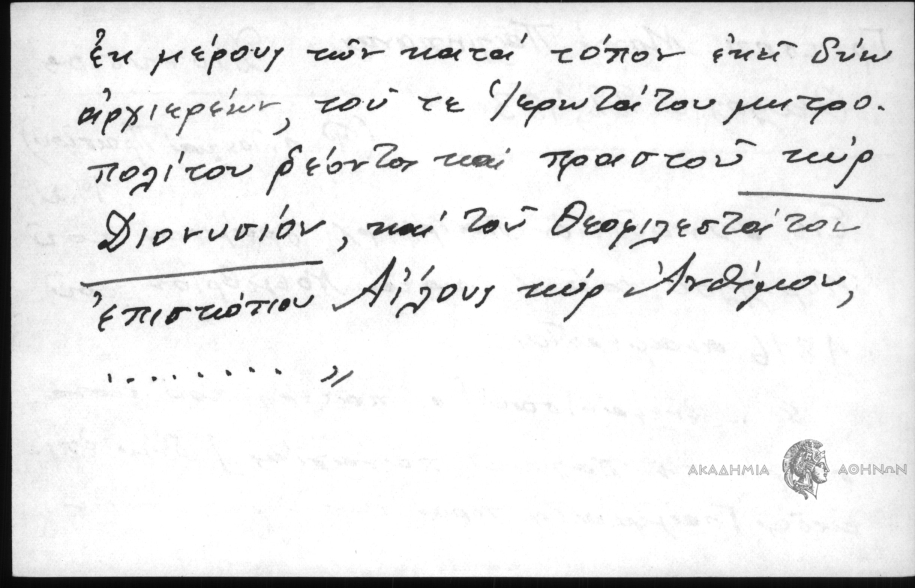 ἐκ μέρους τῶν κατά τόπον ἐκεῖ δύω
ἀρχιερέων, τοῦ τε ἱερωτάτου μητρο-
πολίτου ρέοντος καί πραστοῦ κύρ
Διονυσίου, καί τοῦ θεοφιλεστάτου
ἐπισκόπου Αἴλους κύρ Ἀνθίμου,
. . . . . . . . . »
ΑΚΑΔΗΜΙΑ ΑΘΗΝΩΝ